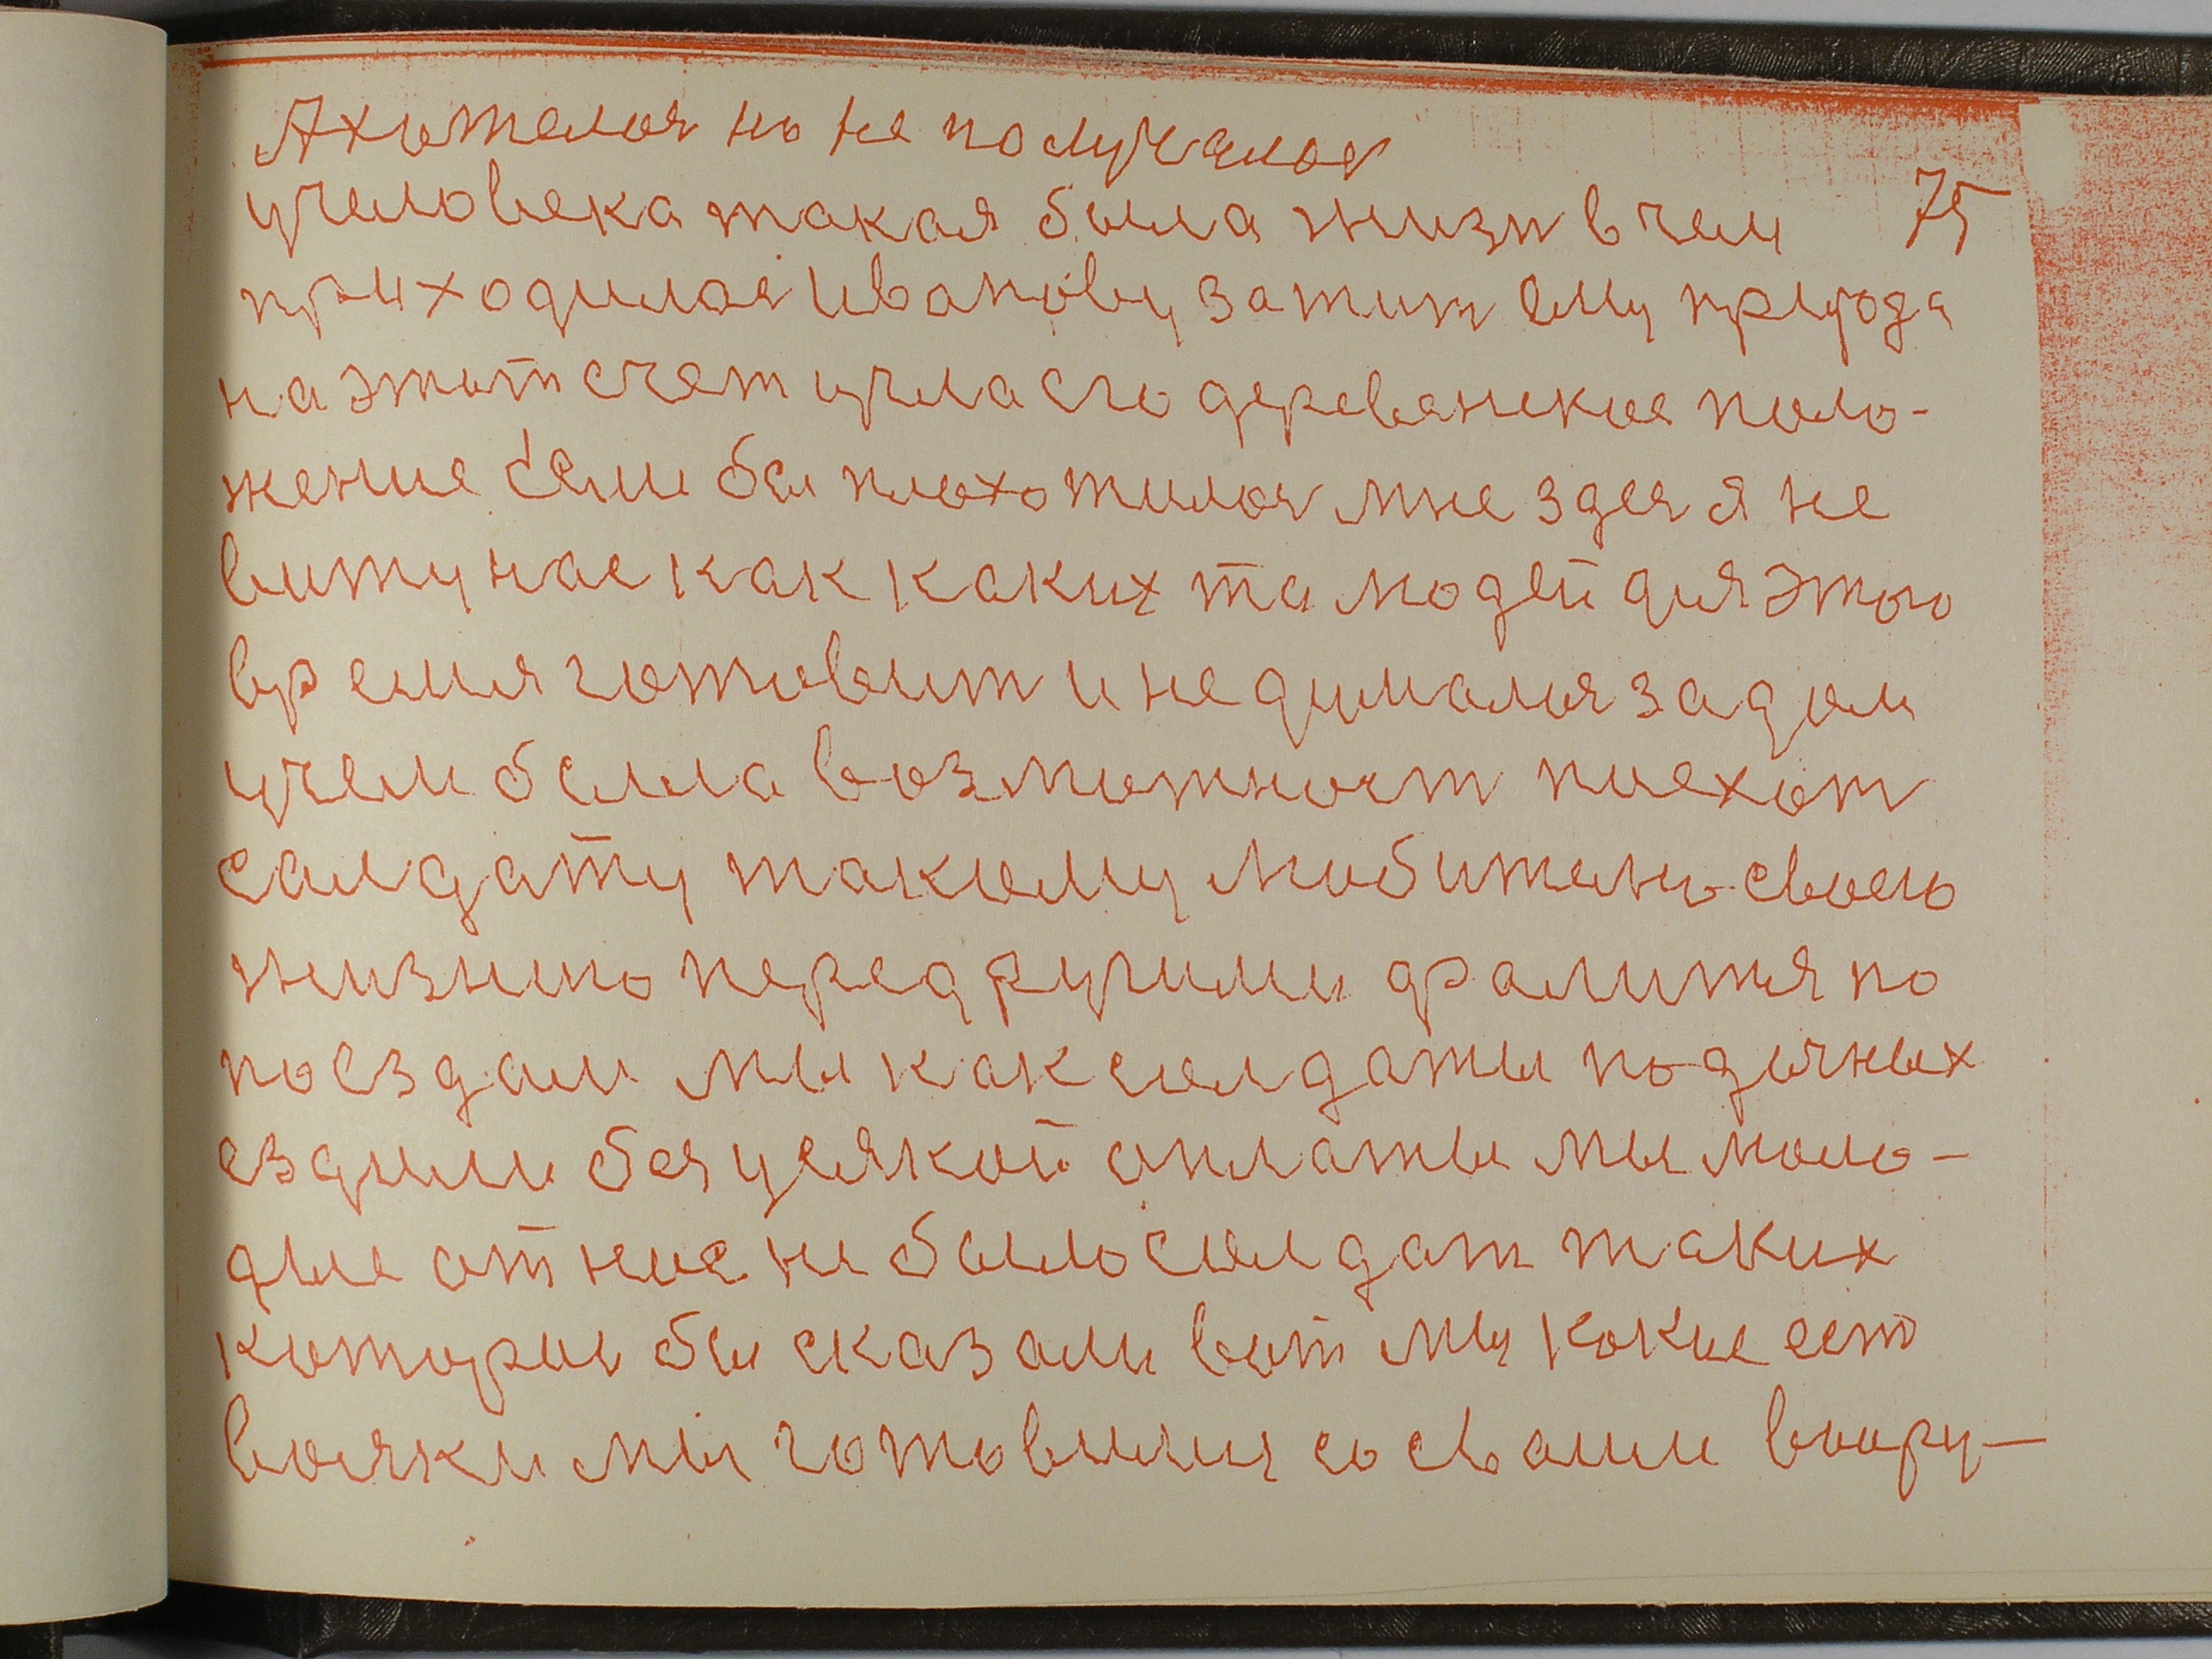 А хотелося но не получалося
учеловека такая была жизн в чем 75
приходилося Иванову за тит ему природа
на этот счет учла его деревенское поло-
жение Если бы плохотилося мне здеся я не
вижу нас как каких та людей для этого
время готовит и не думалися задом
учем былла возможност поехот
салдату такому любителю своею
жизнию перед другими фралится по
поездам мы как солдаты по дачных
ездили без усякой оплаты мы моло-
дые от нас не было солдат таких
которые бы сказали вот мы какие ест
вояки мы готовилися со своими воору-